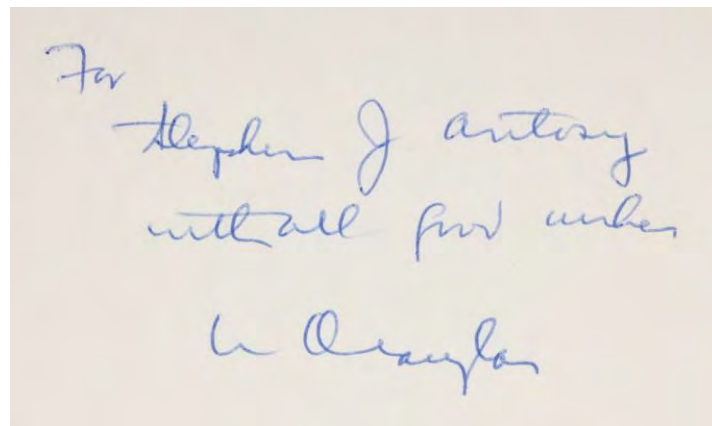 For
Stephen J Antosy
with all good wishes
Wm O Douglas